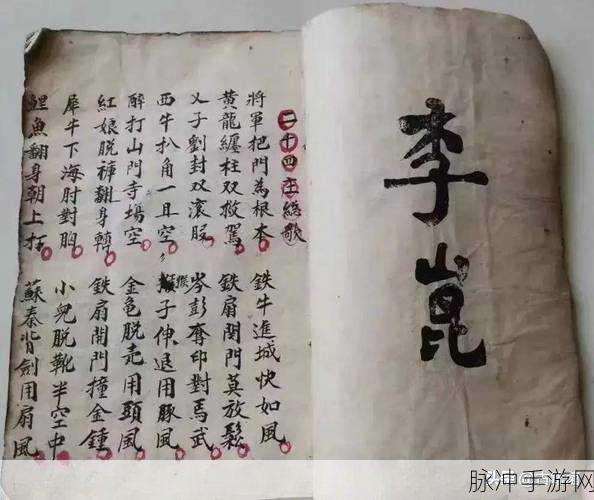 李崑
二十四庄總歌
將軍把門為根本 鉄牛進城快如風
黃龍纏柱双救駕 鉄扇関門莫放鬆
乂子劉封双滾股 岑彭奪印對馬武
西牛扒角一旦空 猴子伸退用豚風
醉打山門寺場空 金龜脱壳用頭風
紅娘脱褲翻身轉 鉄扇門撞金鍾
犀牛下海肘對胸 小兒脱靴半空中
鯉魚翻身朝上打 蘇秦背劍用扇風
脉冲手游网